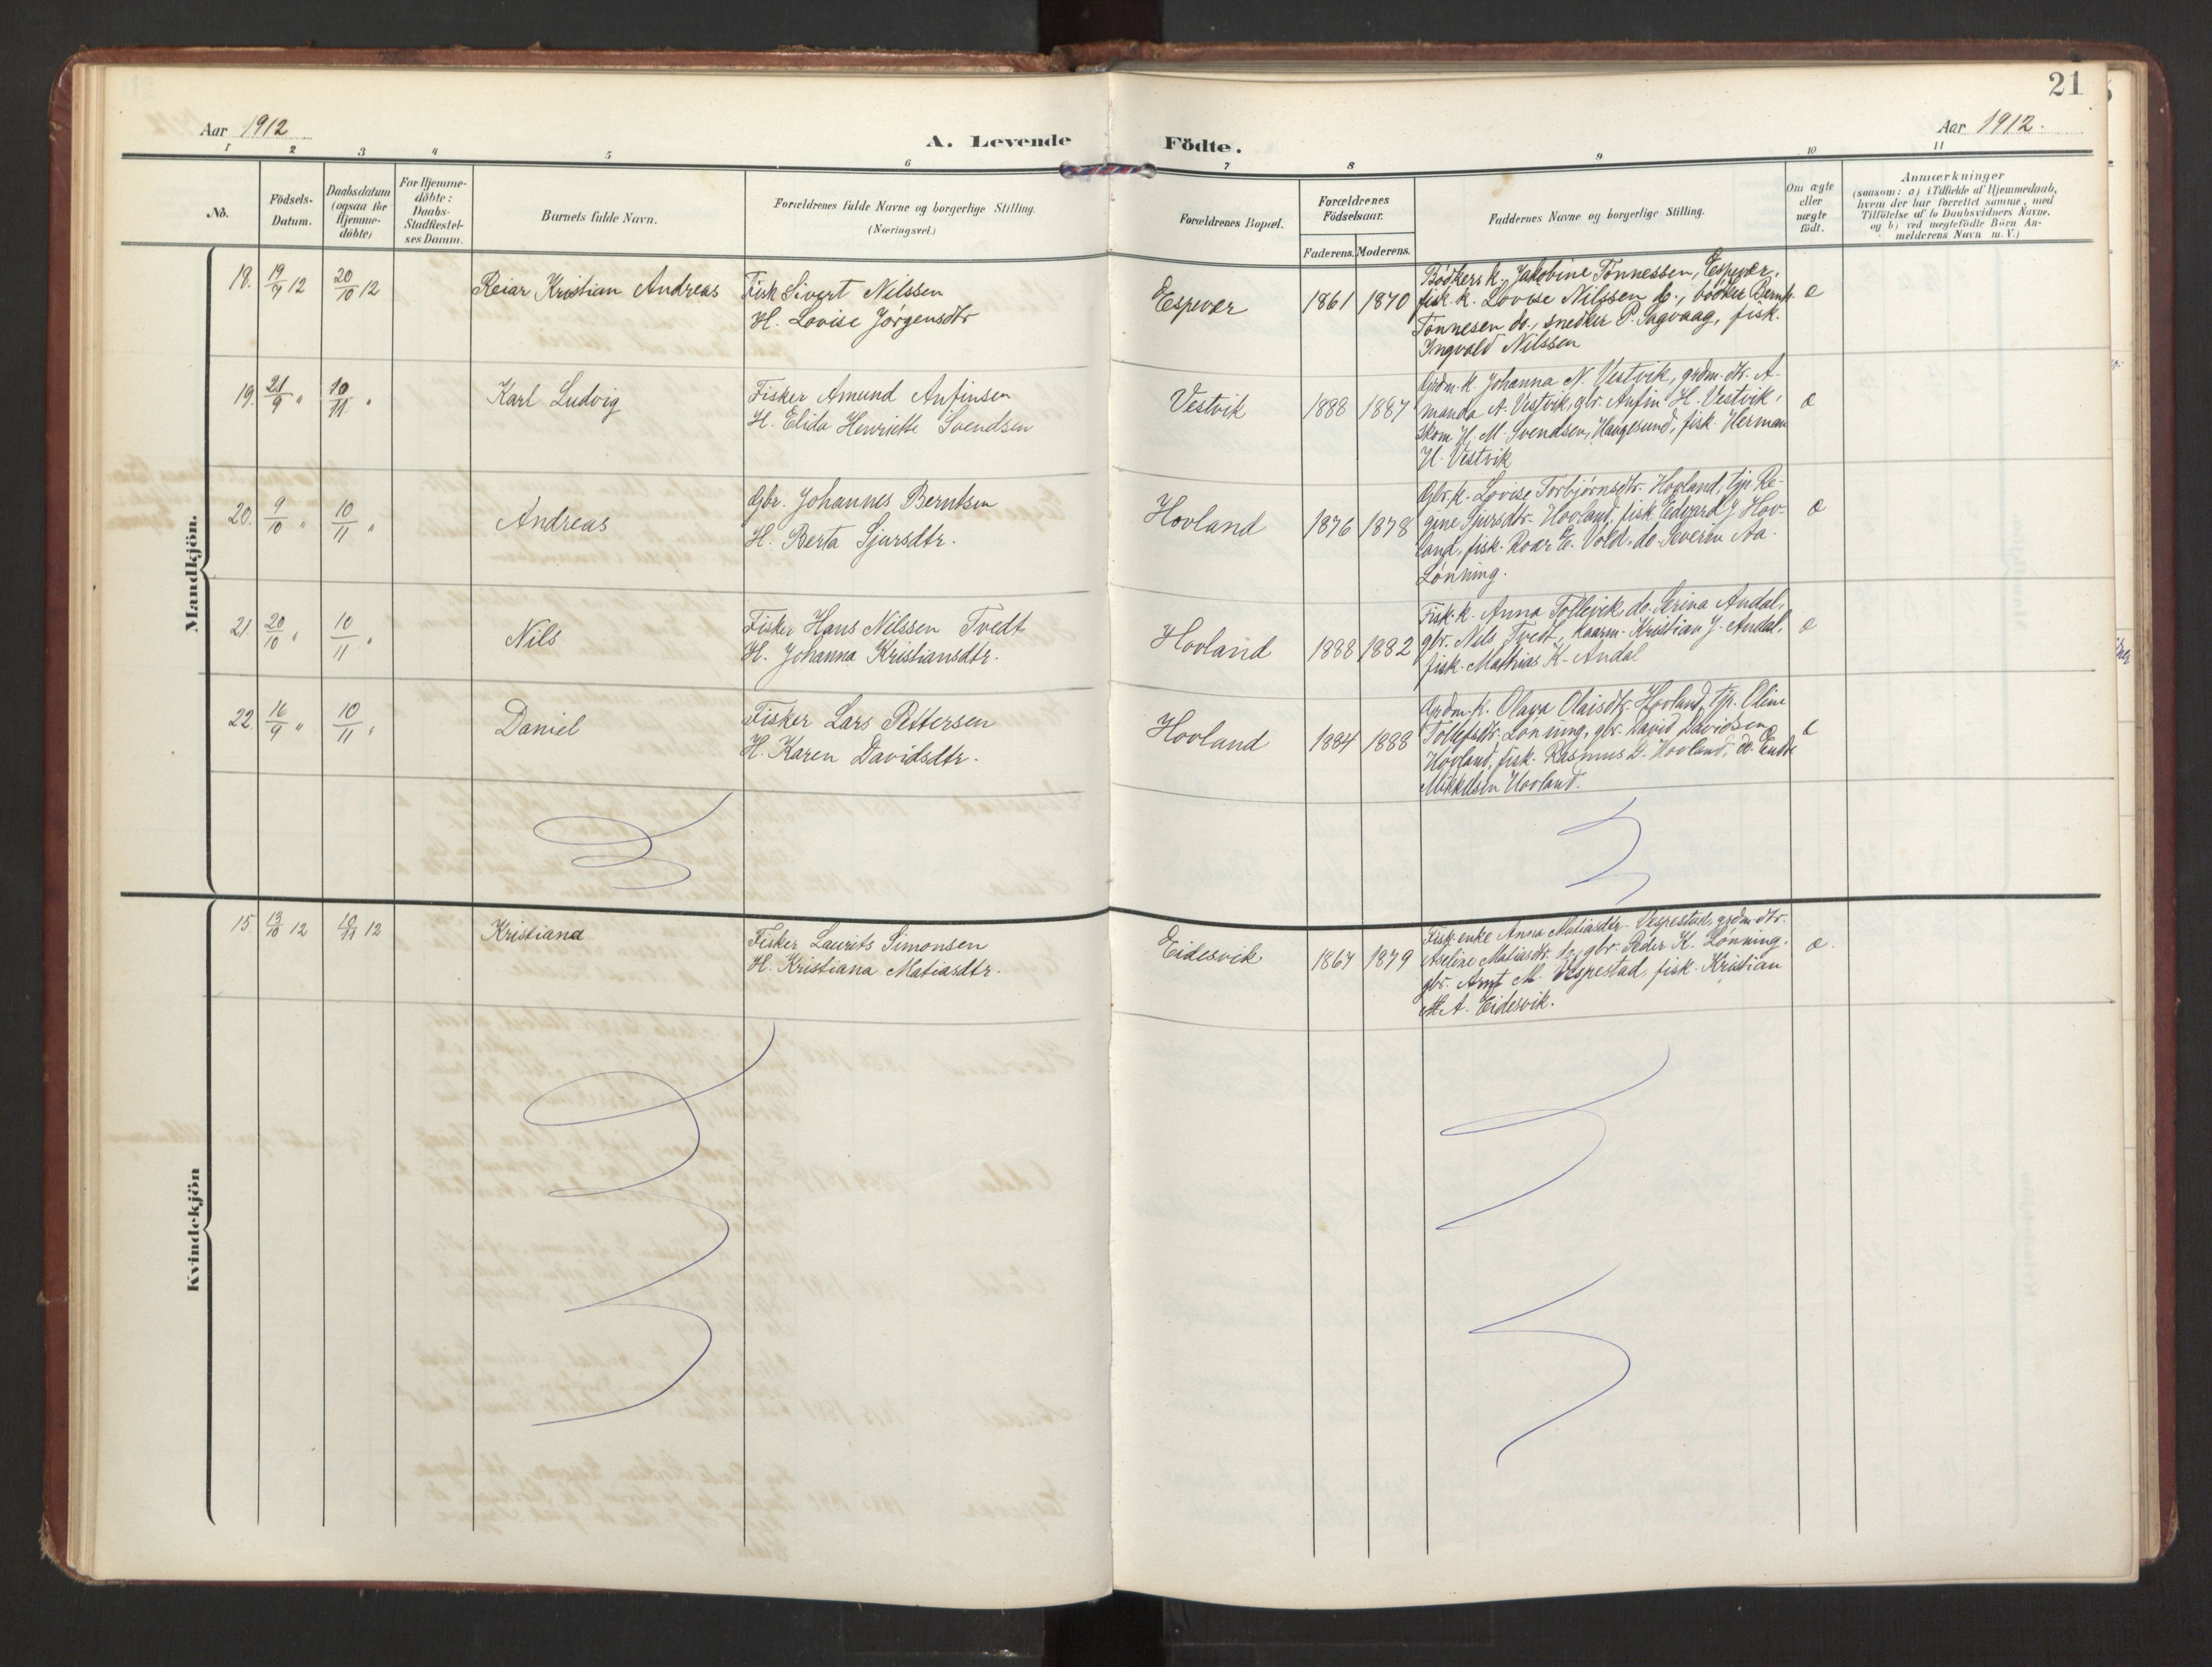 21
Aar 1912
A. Levende Födte.
Aar 1912.
1 2 3 4 5 6 7 8 9 10 11
No.
Födsels-
Datum.
Daabsdatum
(ogsaa for
Hjemme-
döbte)
For Hjemme-
döbte:
Daabs-
Stadfestel-
ses Datum.
Barnets fulde Navn.
Forældrenes fulde Navne og borgerlige Stilling.
(Næringsvei.)
Forældrenes Bopæl.
Forældrenes
Födselsaar.
Faderens. Moderens.
Faddernes Navne og borgerlige Stilling.
Om ægte
eller
uægte
födt.
Anmærkninger
(saasom: a) i Tilfælde af Hjemmedaab,
hvem der har forrettet samme, med
Tilföielse af to Daabsvidners Navne,
og b) ved uægtefödte Börn An-
melderens Navn m. V.)
Mandkjön.
18. 19/7 12 20/10 12 Reiar Kristian Andreas
Fisk Sivert Nilssen
H. Lovise Jørgensdtr
Espevær 1861 1870
Bødkers k. Jakobine Tønnessen, Espevær,
fisk. k. Lovise Nilssen do., bødker Bernh.
Tønnesen do., snedker P. Sagvaag, fisk.
Ingvald Nilssen
æ
19. 21/9 " 10/11 " Karl Ludvig
Fisker Amund Anfinsen
H. Elida Henriette Svendsen
Vestvik 1888 1887
Grdm. k. Johanna N. Vestvik, grdm. dtr. A-
manda A. Vestvik, gbr. Anfin H. Vestvik,
skom. H. M. Svendsen, Haugesund, fisk. Herman
H. Vestvik
æ
20. 9/10 " 10/11 " Andreas
Gbr. Johannes Berntsen
H. Berta Sjursdtr.
Hovland 1876 1878
Gbr. k. Lovise Torbjørnsdtr. Hovland, tj. Re-
gine Sjursdtr. Hovland, fisk. Edvard J. Hov-
land, fisk. Roar E. Vold, do. Severin Aa.
Lønning.
æ
21. 20/10 " 10/11 " Nils
Fisker Hans Nilssen Tvedt
H. Johanna Kristiansdtr.
Hovland 1888 1882
Fisk. k. Anna Tollevik, do. Serina Andal,
gbr. Nils Tvedt, kaarm. Kristian J. Andal,
fisk. Mathias K. Andal
æ
22. 16/9 " 10/11 " Daniel
Fisker Lars Pettersen
H. Karen Davidsdtr.
Hovland 1884 1888
Grdm. k. Olava Olaisdtr. Hovland, tj. Oline
Tollefsdtr. Lønning, gbr. David Davidsen
Hovland, fisk. Rasmus D. Hovland, do. Endre
Mikkelsen Hovland.
æ
Kvindekjön
15. 13/10 12 10/11 12 Kristiana
Fisker Laurits Simonsen
H. Kristiana Matiasdtr.
Eidesvik 1867 1879
Fisk. enke Anna Matiasdtr. Vespestad, grdm. dtr.
Aseline Matiasdtr. do., gbr. Peder K. Lønning,
gbr. Arnt M. Vespestad, fisk. Kristian
M. A. Eidesvik.
æ.